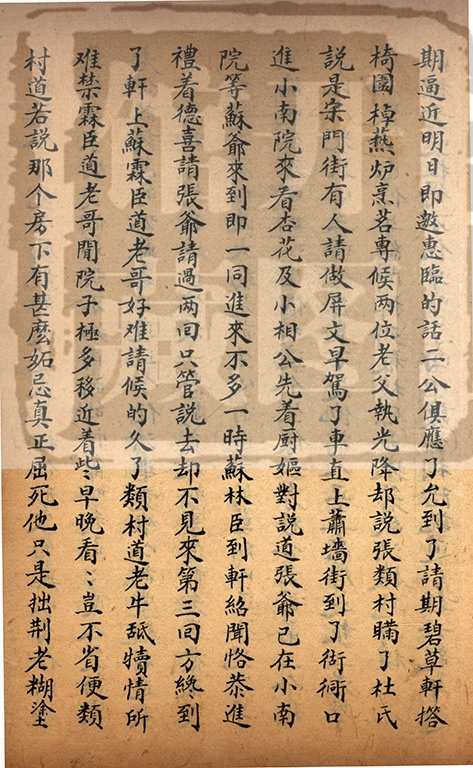 期逼近明日即邀惠臨的話二公俱應了允到了請期碧草軒搭
椅圍棹爇炉烹茗專候两位老父執光降却說張類村瞞了杜氏
說是宋門街有人請做屏文早駕了車直上蕭墻街到了衚衕口
進小南院來看杏花及小相公先着厨嫗對說道張爺已在小南
院等蘇爺來到即一同進來不多一時蘇林臣到軒紹聞恪恭進
禮着德喜請張爺請過两回只管說去却不見來第三回方纔到
了軒上蘇霖臣道老哥好难請候的久了類村道老牛舐犢情所
难禁霖臣道老哥閒院子極多移近着些早晚看〻豈不省便類
村道若說那个房下有甚麽妬忌真正屈死他只是拙荆老糊塗